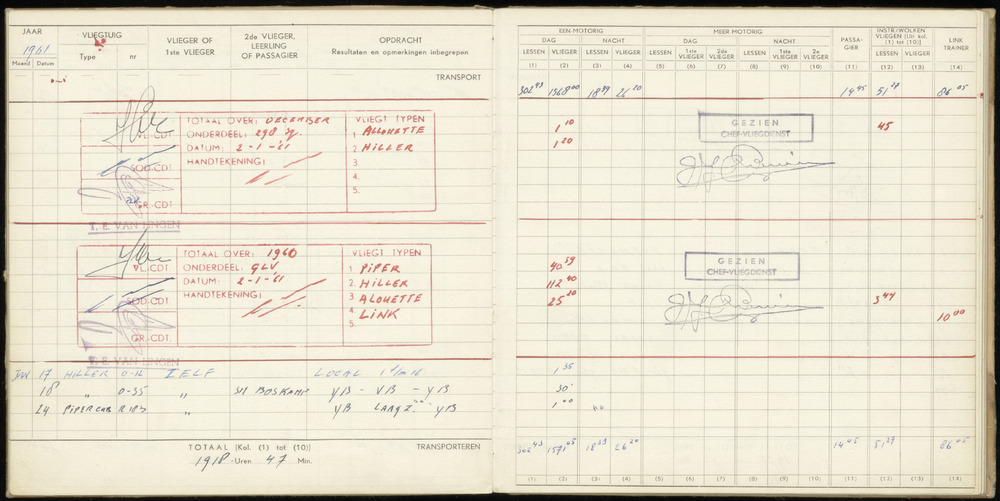 JAAR
1961
Maand Datum
VLIEGTUIG
Type nr
VLIEGER OF
1ste VLIEGER
2de VLIEGER,
LEERLING
OF PASSAGIER
OPDRACHT
Resultaten en opmerkingen inbegrepen
TRANSPORT
TOTAAL OVER: DECEMBER
ONDERDEEL: 298
DATUM: 2-1-'61
HANDTEKENING:
VL.-CDT.
SQD.-CDT.
GR.-CDT.
VLIEGT TYPEN
1. ALLOUETTE
2. HILLER
3.
4.
5.
T. E. VAN LINGEN
TOTAAL OVER: 1960
ONDERDEEL: GLV
DATUM: 2-1-'61
HANDTEKENING:
VL.-CDT.
SQD.-CDT.
GR.-CDT.
VLIEGT TYPEN
1. PIPER
2. HILLER
3. ALOUETTE
4. LINK
5.
T. E. VAN LINGEN
JAN 17 HILLER ZELF LOCAL
18 " 0-35 " BOSKAMP YB - VB - YB
24 PIPERCUB " YB YB
TOTAAL [Kol. (1) tot (10)]
1918 Uren 47 Min.
TRANSPORTEREN
EEN-MOTORIG
DAG NACHT
LESSEN VLIEGER LESSEN VLIEGER
(1) (2) (3) (4)
MEER MOTORIG
DAG NACHT
LESSEN 1ste VLIEGER 2de VLIEGER LESSEN 1ste VLIEGER 2e VLIEGER
(5) (6) (7) (8) (9) (10)
PASSA-
GIER
(11)
INSTR/WOLKEN
VLIEGEN [Uit kol.
(1) tot (10)]
LESSEN VLIEGER
(12) (13)
LINK
TRAINER
(14)
302 43 1568 00 18 39 26 20 14 45 51 27 86 05
1 10 45
1 20
GEZIEN
CHEF-VLIEGDIENST
40 59
112 40
25 20 3 44
10 00
GEZIEN
CHEF-VLIEGDIENST
1 35
30
1 00
302 43 1571 05 18 39 26 20 14 45 51 27 86 05
(1) (2) (3) (4) (5) (6) (7) (8) (9) (10) (11) (12) (13) (14)